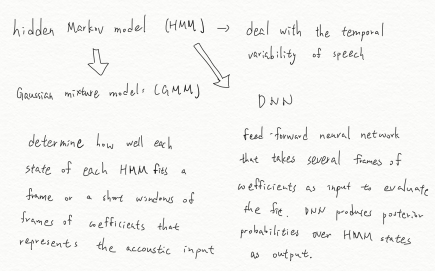 hidden Markov model (HMM) → deal with the temporal
variability of speech
Gaussian mixture models (GMM)
DNN
determine how well each
state of each HMM fits a
frame or a short windows of
frames of coefficients that
represents the accoustic input
feed-forward neural network
that takes several frames of
coefficients as input to evaluate
the fit. DNN produces posterior
probabilities over HMM states
as output.